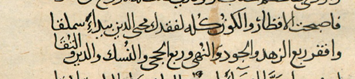 فاصبحت الاقطار والكون كله لفقدك محيى الدين بيداء سملقا
وافقر ربع الزهد والجود والنهى وربع الحجى والنسك والدين والتقا